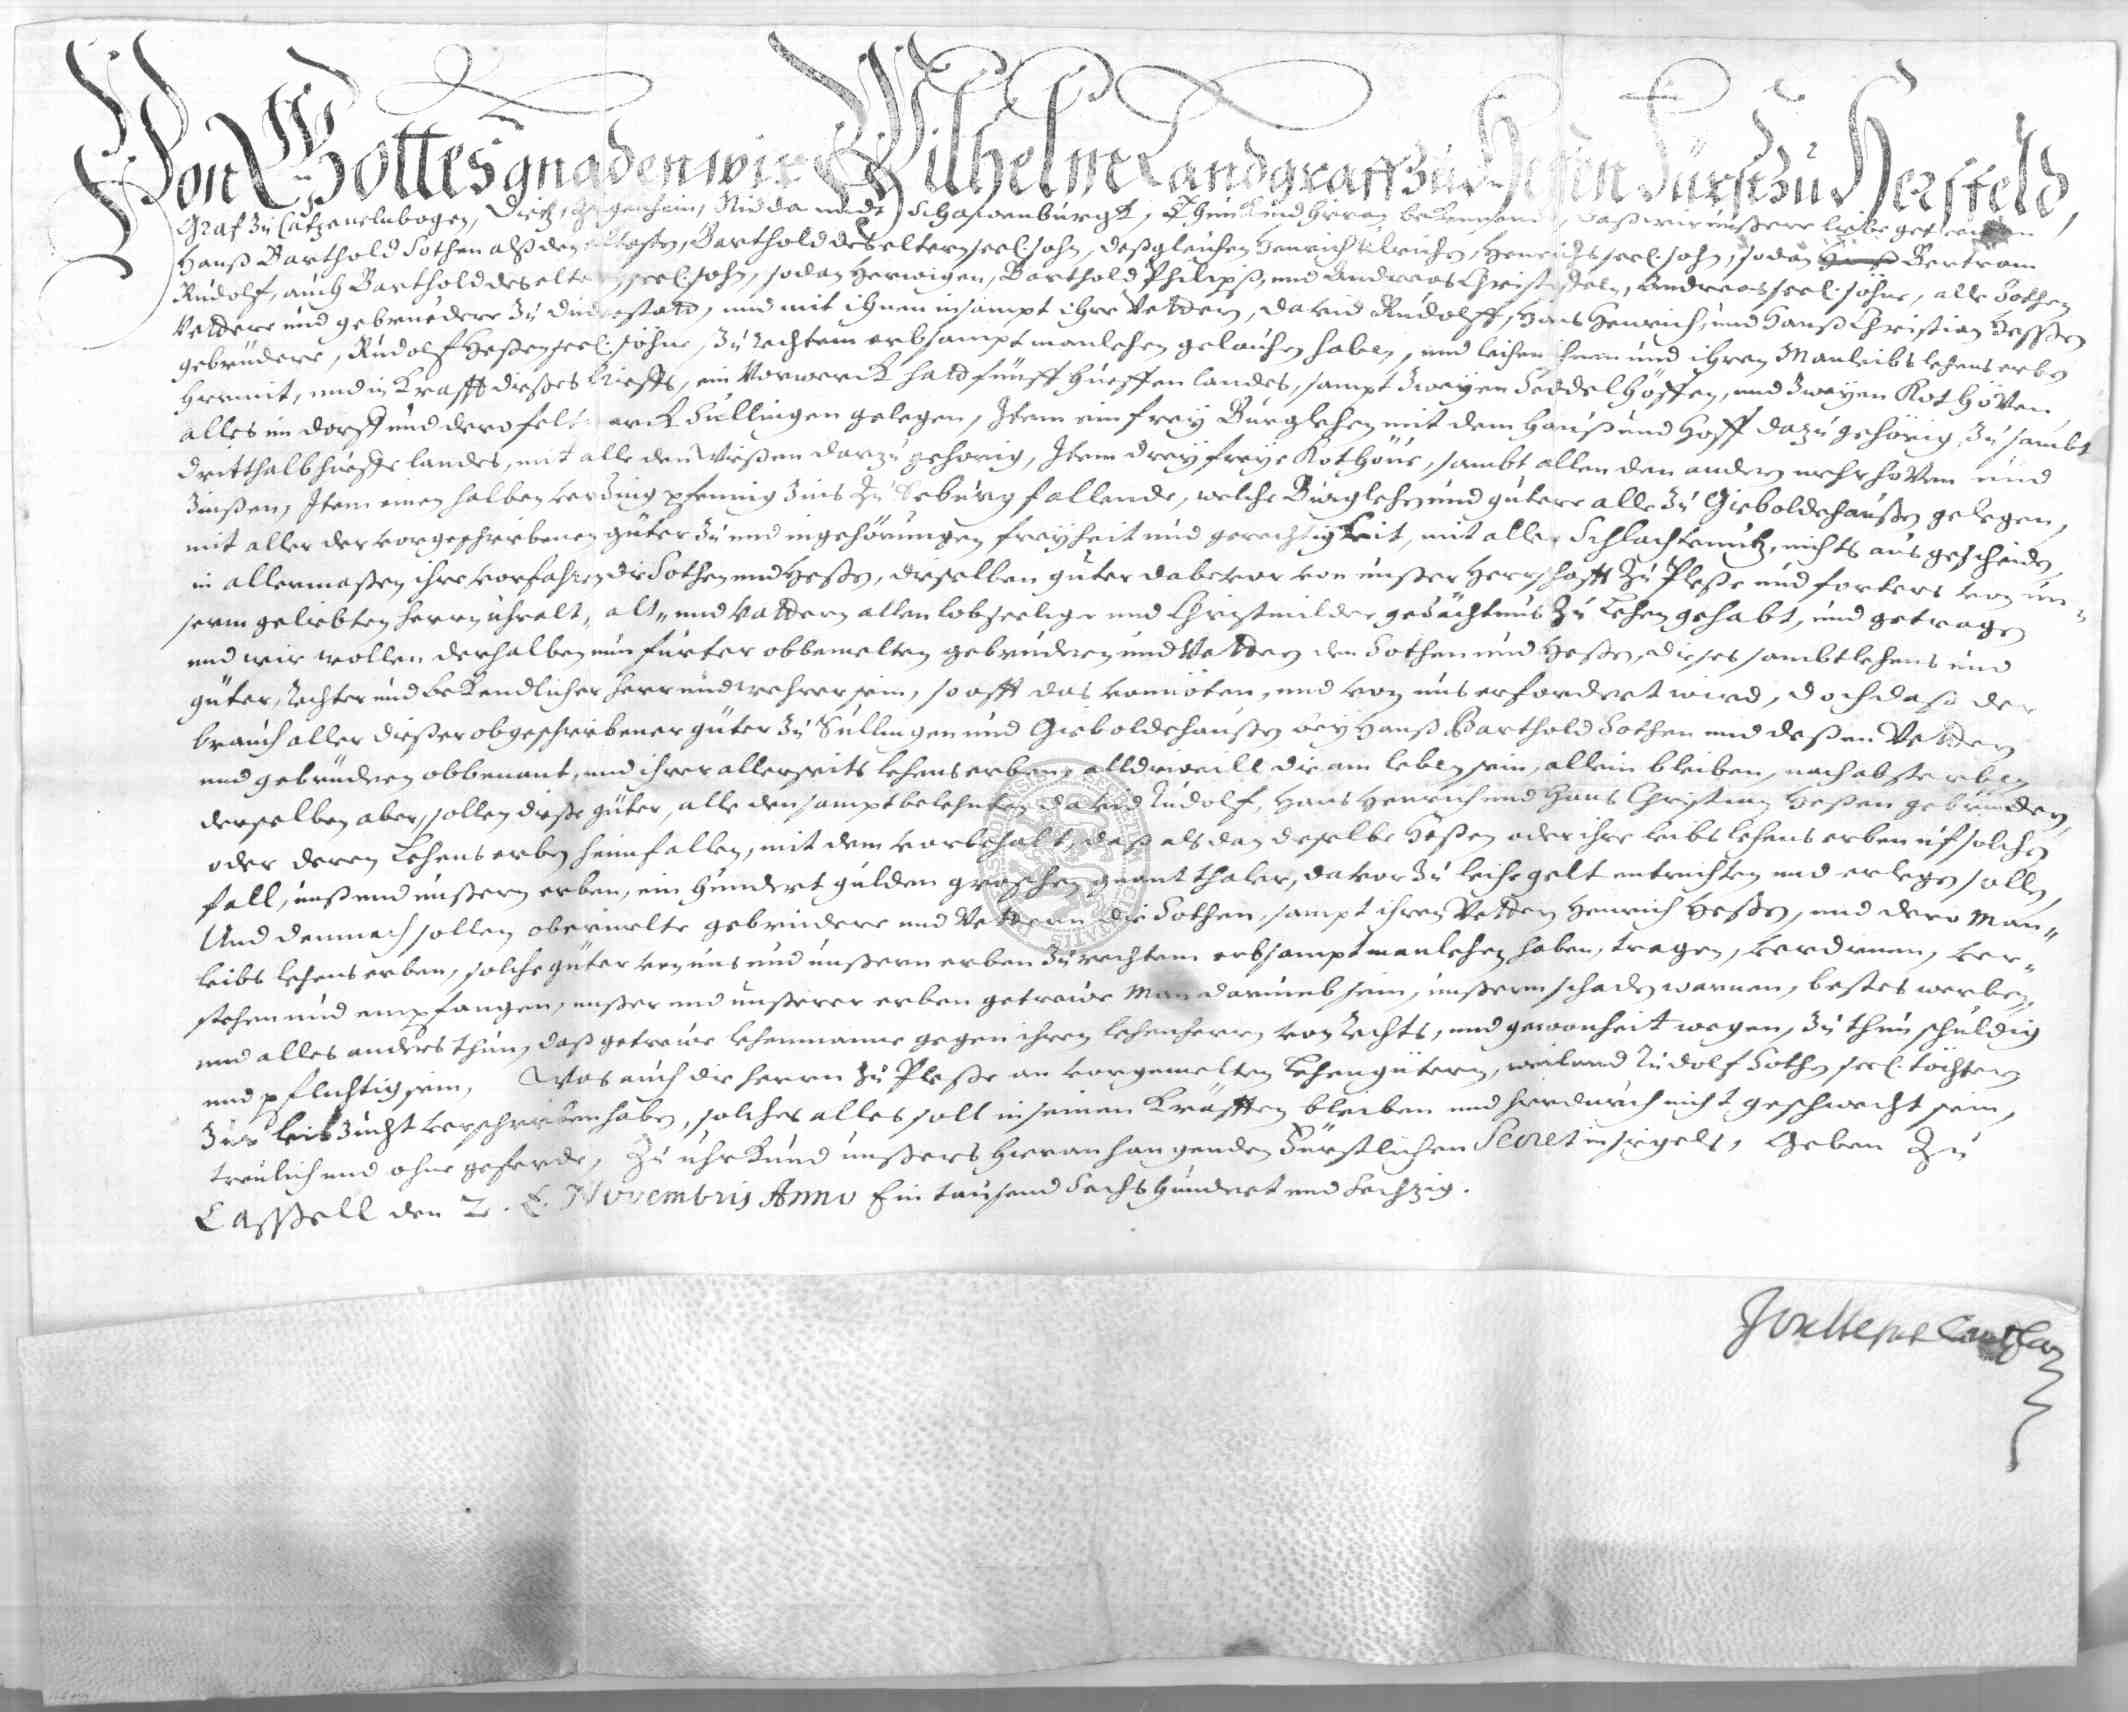 Von Gottes gnaden wir Wilhelm Landgraff zu Hessen Fürst zu Herßfeld,
Graf zu Catzenelnbogen, Dietz, Ziegenhein, Nidda undt Schawenburgk, Thun kund hieran bekennend, daß wir unßere liebe getrewen
Hanß Barthold Sothen alß den eltesten, Barthold des eltern seel: sohn, deßgleichen Henrich Ulrichen, Henrichs seel: sohn, sodan Bertram
Rudolf, auch Barthold des eltern seel: sohn, sodan Herwigen, Barthold Philipß, und Andreas Christoffeln, Andreas seel: söhne, alle Sothen
Vettere und gebruedere zu Duderstatd, und mit ihnen insampt ihre Vettern, David Rudolff, Hans Henrich, und Hanß Christian Hessen
gebrüdere, Rudolf Heßen seel: söhne, zu rechtem erbsampt manlehen geliehen haben, und leihen ihnen und ihren Manleibs lehens erben
hiermit, und in Krafft dießes brieffs, ein Vorwerck hatd fünff hueffen landes, sampt zweyen Seddelhöffen, und zweyen Kothöven
alles im dorff und dero feltmarck Süllingen gelegen, Item ein frey Burglehen mit dem hauß und hoff dazu gehörig, zu sambt
dritthalb hueffe landes, mit alle den Wießen darzu gehorig, Item drey freye Kothöve, sambt allen den andern mehr hoven und
Zinßen, Item einen halben verding pfennig zins zu Seburg fallende, welche Burglehen und gutere alle zu Gieboldehaußen gelegen,
mit aller der vorgeschriebenen güter zu und ingehörungen freyheit und gerechtigkeit, mit aller Schlachtenutz, nichts aus gescheiden,
in allermaßen ihre vorfahren die Sothen und Heßen, dieselben guter dabevor von unßer Herrschafft zu Pleße und forters von un-
serm geliebten herrn uhralt, alt- und Vattern allen lobseelige und Christmilder gedächtnus zu Lehen gehabt, und getragen
und wir wollen derhalben nun furter obbemelten gebrudern und Vettern den Sothen und Heßen, dieses sambtlehens und
güter, rechter und bekendlicher herr und wehrer sein, so offt das vonnöten, und von uns erfordert wird, doch daß der
brauch aller dießer obgeschriebener güter zu Süllingen und Gieboldehaußen bey Hanß Barthold Sothen und deßen Vettern
und gebrüdern obbenant, und ihrer allerseits lehens erben, alldieweill die am leben sein, allein bleiben, nach absterben
derselben aber, sollen dieße güter, alle den samptbelehnten David Rudolf, Hans Henrich und Hans Christian Heßen gebrüdern,
oder deren Lehens erben heimfallen, mit dem vorbehalt, daß als dan dieselbe Heßen oder ihre leibs lehens erben uf solchen
fall, unß und unßern erben, ein hundert gulden groschen gnant thaler, davor zu leihegelt entrichten und erlegen sollen,
Und demnach sollen obermelte gebrüdere und Vettern die Sothen, sampt ihren Vettern Henrich Heßen, und dero Man-
leibs lehens erben, solche güter von uns und unßern erben zu rechtem erbsampt manlehen haben, tragen, verdienen, ver-
stehen und empfangen, unßer und unßerer erben getrewe Man darumb sein, unßern schaden warnen, bestes werben,
und alles anders thun, daß getrewe lehenmanne gegen ihren lehenherrn von rechts, und gewonheit wegen, zu thun schuldig
und pflichtig sein, Was auch die herrn zu Pleße an vorgemelten Lehengütern, weiland Rudolf Sothen seel: töchtern
zur leibzucht verschrieben haben, solches alles soll in seinen Kräfften bleiben und hierdurch nicht geschwecht sein,
treulich und ohne geferde, Zu uhrkund unßers hieran hangenden Fürstlichen Secret insiegels, Geben Zu
Casßell den 2. Novembris Anno Ein tausend Sechs hundert und Sechzig.